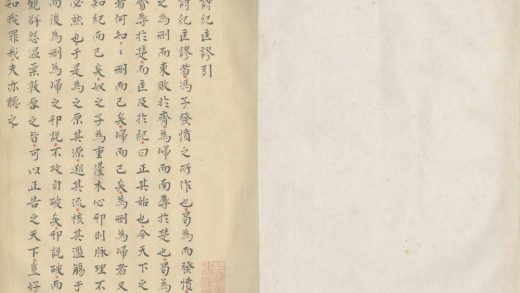 詩紀匡謬引
詩紀匡謬者馮子發憤之所作也曷為而發憤
之為刪而東敗於齊為歸而南辱於楚也曷為
齊辱於楚而匡及於紀曰正其始也今天下之
者何知〻刪而已矣歸而已矣為刪為歸者又
知紀而已矣奴之子為重儓木心邪則脈理不
必然也于是為之原其源遡其流核其濫觴于
而後為刪為歸之邪說不攻自破矣邪說破而
觀群怨溫柔敦厚之旨可以正告之天下豈好
知我罪我夫亦聽之